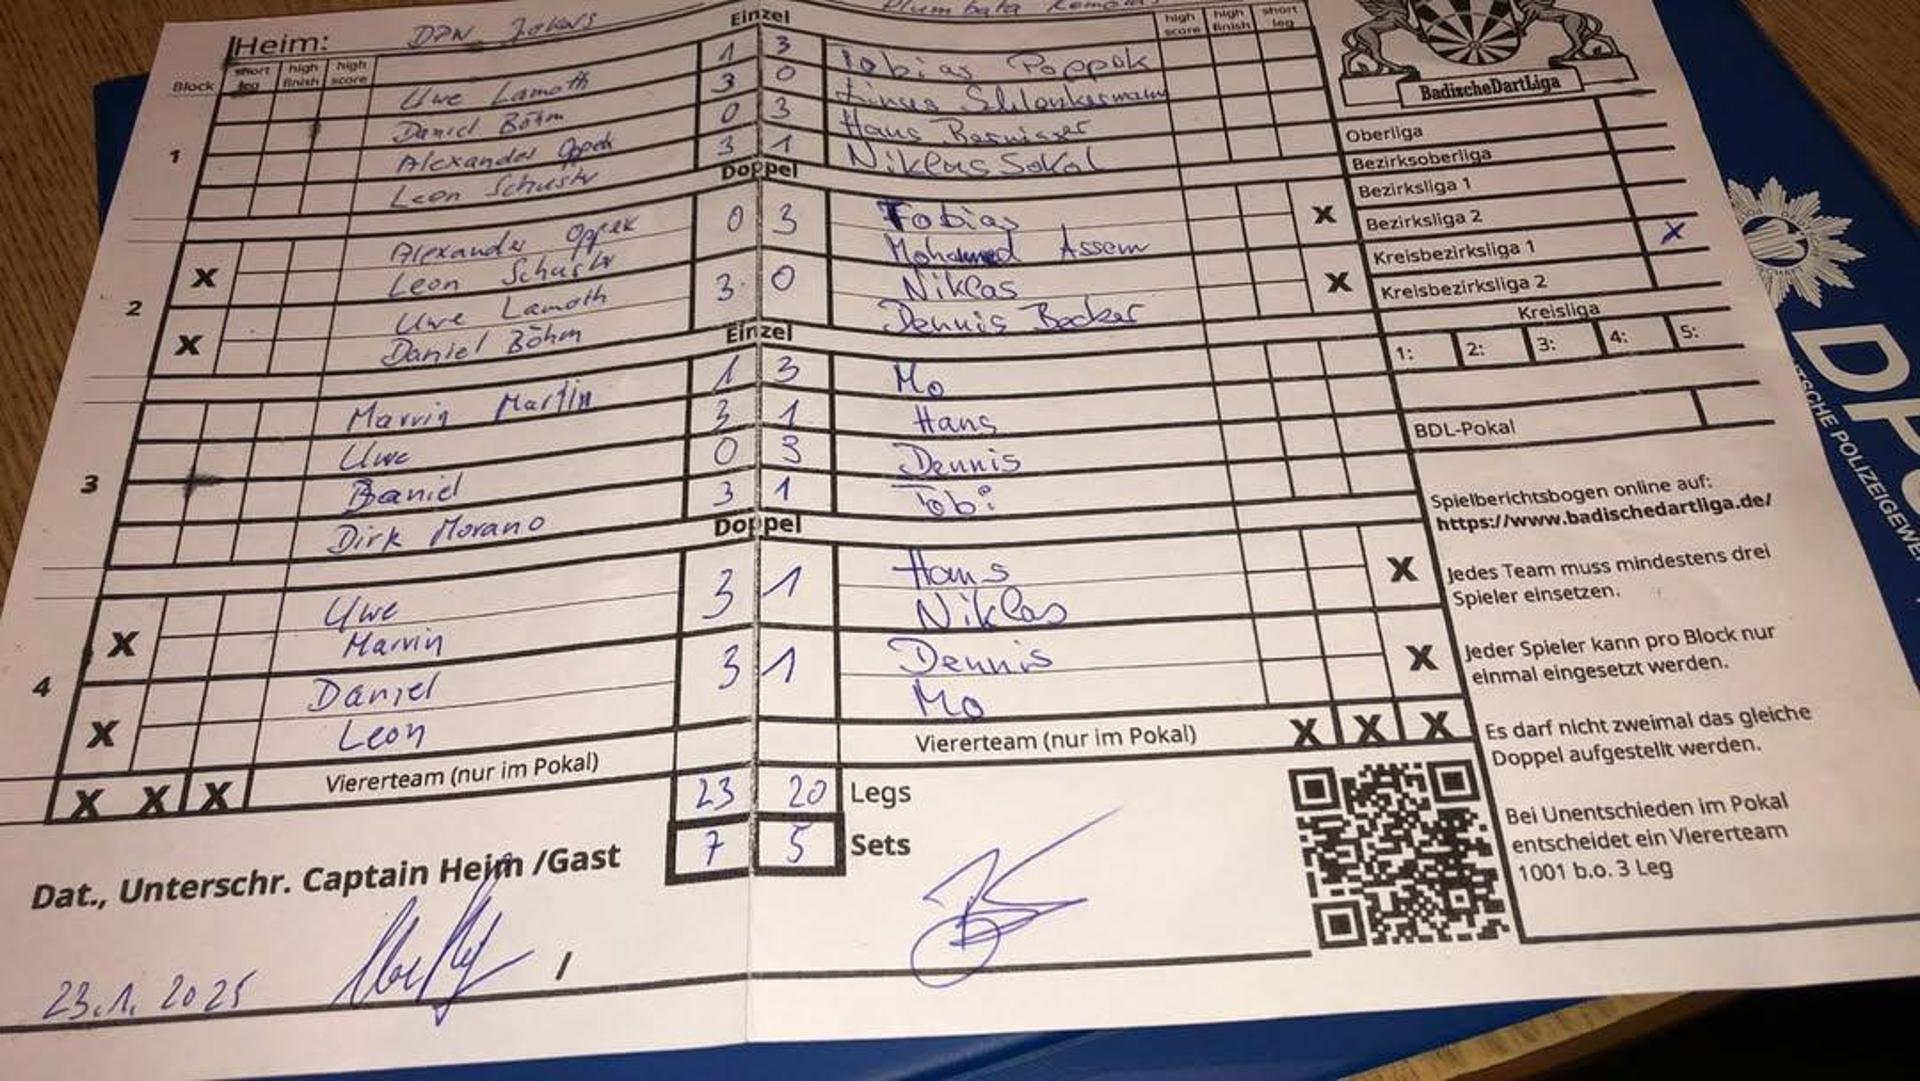 Heim: DPW Jokers Einzel
Block short leg high finish high score high score high finish short leg
Uwe Lamoth 1 3 Tobias Poppok
Daniel Böhm 3 0
1 Alexander Oppek 0 3 Hans
Leon Schuster 3 1 Niklas Sokol
Doppel
Alexander Oppek 0 3 Tobias
X Leon Schuster Mohamed Assem X
2 Uwe Lamoth 3 0 Niklas
X Daniel Böhm Dennis Becker X
Einzel
Marvin Martin 1 3 Mo
Uwe 3 1 Hans
3 Daniel 0 3 Dennis
Dirk Morano 3 1 Tobi
Doppel
Uwe 3 1 Hans
X Marvin Niklas X
4 Daniel 3 1 Dennis
X Leon Mo X
X X X Viererteam (nur im Pokal) Viererteam (nur im Pokal) X X X
23 20 Legs
7 5 Sets
Dat., Unterschr. Captain Heim /Gast
23.1.2025 /
BadischeDartLiga
Oberliga
Bezirksoberliga
Bezirksliga 1
Bezirksliga 2
Kreisbezirksliga 1 X
Kreisbezirksliga 2
Kreisliga
1: 2: 3: 4: 5:
BDL-Pokal
Spielberichtsbogen online auf:
https://www.badischedartliga.de/
Jedes Team muss mindestens drei
Spieler einsetzen.
Jeder Spieler kann pro Block nur
einmal eingesetzt werden.
Es darf nicht zweimal das gleiche
Doppel aufgestellt werden.
Bei Unentschieden im Pokal
entscheidet ein Viererteam
1001 b.o. 3 Leg